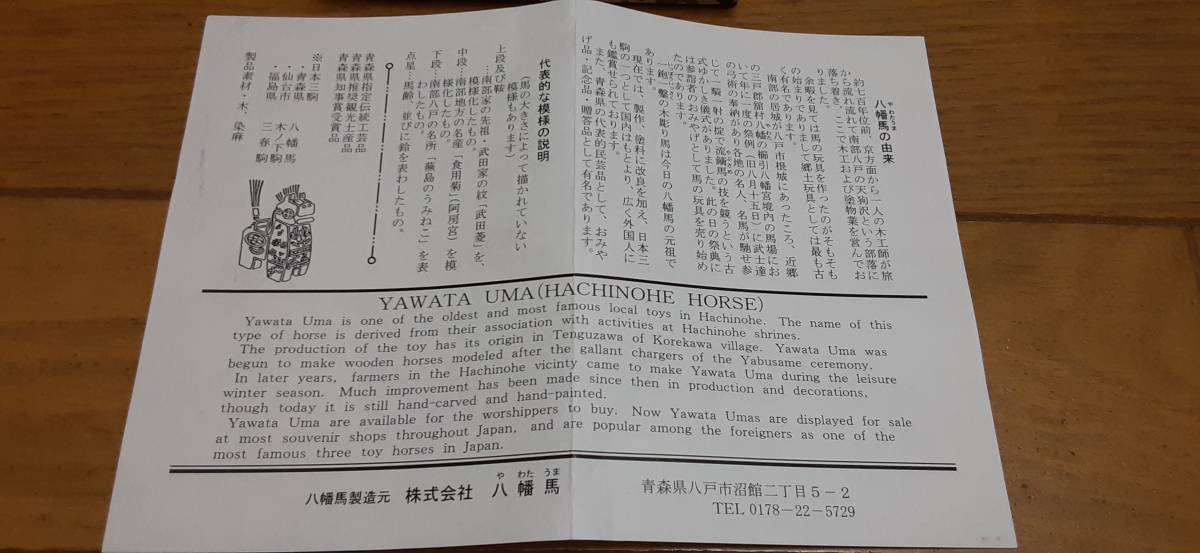 八幡馬の由来
やわたうま
約七百年位前、京方面から一人の木工師が旅
から流れ流れて南部八戸の天狗沢という部落に
落ち着き、ここで木工および塗物業を営んでお
りました。
余暇を見ては馬の玩具を作ったのがそもそも
の始まりでありまして郷土玩具としては最も古
く有名であります。
南部の居城が八戸市根城にあったころ、近郷
の三戸郡館村八幡の櫛引八幡宮境内の馬場にお
いて年に一度の祭例(旧八月十五日)に武士達
の弓術の奉納があり各地の名人、名馬が馳せ参
じて一騎一射の掟で流鏑馬の技を競うという古
やぶさめ
式ゆかしき儀式がありました。此の日の祭典に
は参詣者のおみやげとして馬の玩具を売り始め
たのであります。
一鉋一鑿の木彫り馬は今日の八幡馬の元祖で
あります。
現在では、製作、塗料に改良を加え、日本三
駒の一つとして国内はもとより、広く外国人に
も鑑賞せられております。
また、青森県の代表的民芸品として、おみや
げ品・記念品・贈答品として有名であります。
代表的な模様の説明
(馬の大きさによって描かれていない
模様もあります)
上段及び鞍
…南部家の先祖・武田家の紋「武田菱」を、
模様化したもの。
中段…南部地方の名産「食用菊」(阿房宮)を模
様化したもの。
下段…南部八戸の名所「蕪島のうみねこ」を表
わしたもの。
点星…馬齢、並びに鈴を表わしたもの。
青森県指定伝統工芸品
青森県推奨観光土産品
青森県知事賞受賞品
※日本三駒
・青森県 八幡馬
・仙台市 木ノ下駒
・福島県 三春駒
製品素材・木、染麻
YAWATA UMA(HACHINOHE HORSE)
Yawata Uma is one of the oldest and most famous local toys in Hachinohe. The name of this
type of horse is derived from their association with activities at Hachinohe shrines.
The production of the toy has its origin in Tenguzawa of Korekawa village. Yawata Uma was
begun to make wooden horses modeled after the gallant chargers of the Yabusame ceremony.
In later years, farmers in the Hachinohe vicinty came to make Yawata Uma during the leisure
winter season. Much improvement has been made since then in production and decorations,
though today it is still hand-carved and hand-painted.
Yawata Uma are available for the worshippers to buy. Now Yawata Umas are displayed for sale
at most souvenir shops throughout Japan, and are popular among the foreigners as one of the
most famous three toy horses in Japan.
や わた うま
八幡馬製造元 株式会社 八幡馬
青森県八戸市沼館二丁目5-2
TEL 0178-22-5729